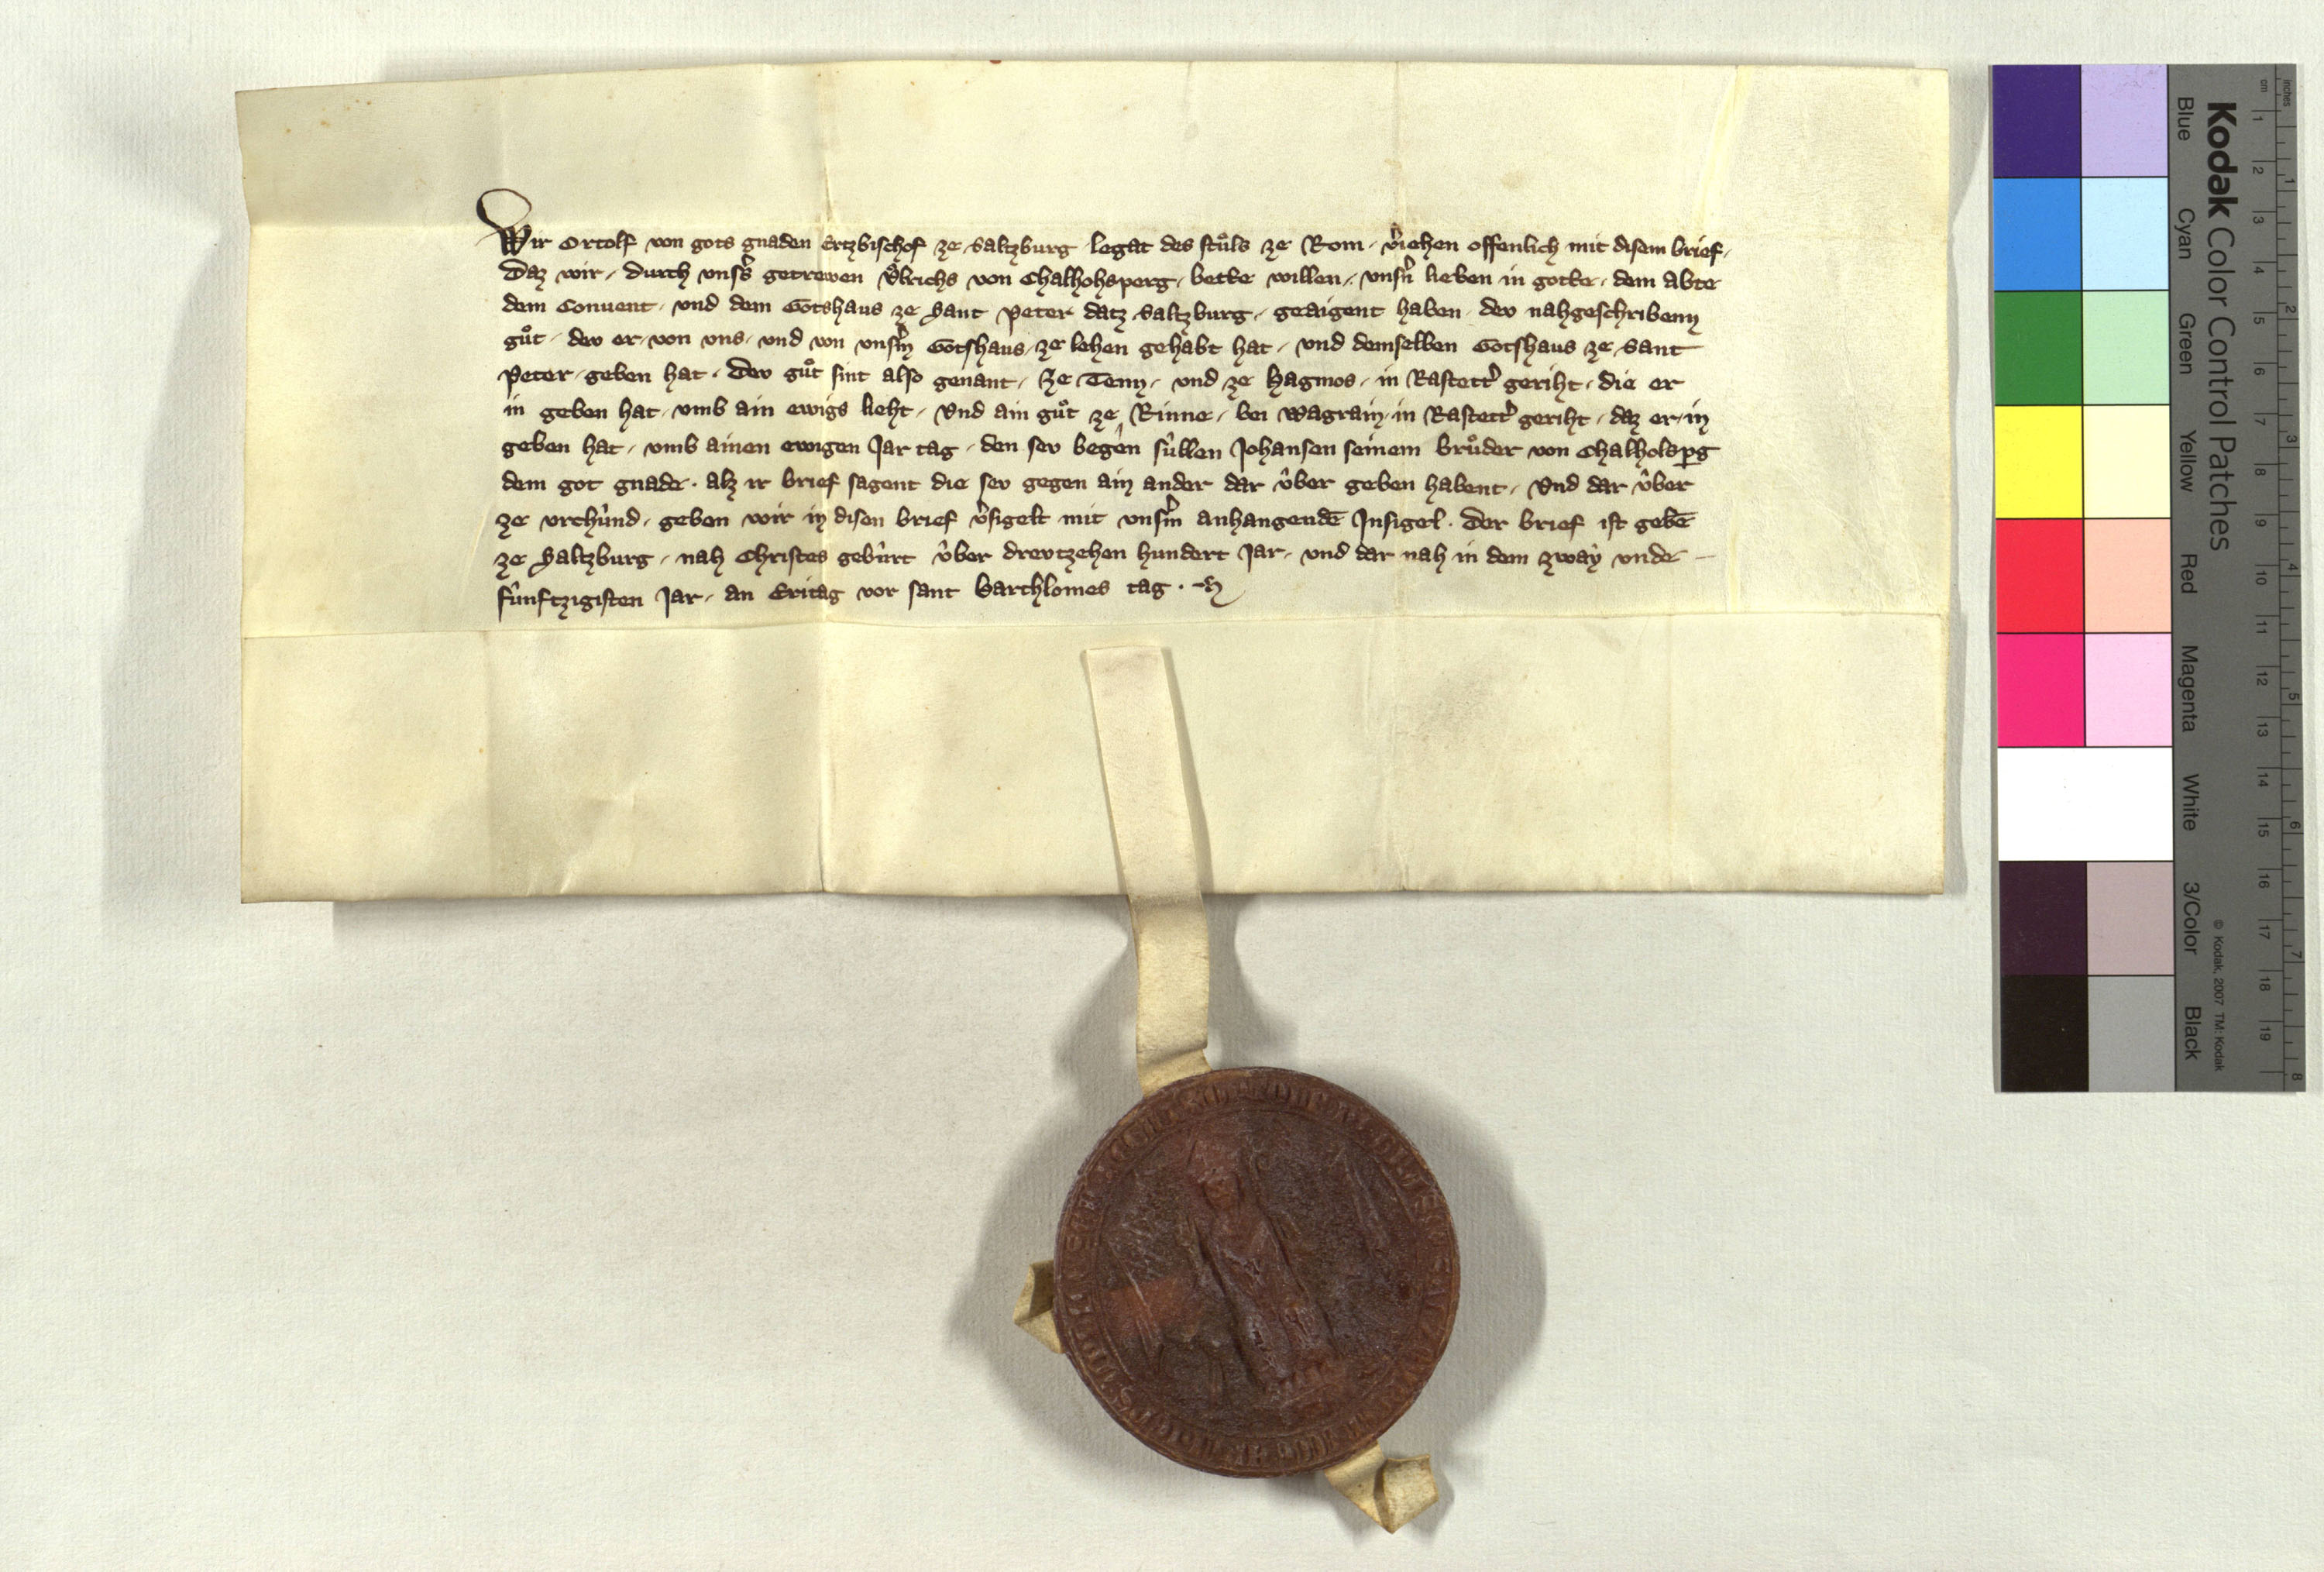 Wir Ortolf von gots gnaden Ertzbischof ze Saltzburg legat des stůls ze Rom v̾iehen offenlich mit disem brief
Daz wir durch vns̾s getrewen Vͦlrichs von Chalhohsperg bette willen vns̾n lieben in gotte dem abte
dem Conuent und dem Gotshaus ze Sant Peter datz Saltzburg geaigent haben dev nahgeschribenn
gůt dev er von vns und von vns̾m Gotshaus ze lehen gehabt hat und demselben Gotshaus ze Sant
Peter geben hat. Dev gůt sint also genant Ze Tenn und ze Hagmos in Rastett̾ geriht die er
in geben hat vmb ain ewigs lieht Vnd ain gůt ze Rinne bei Wagrain in Rastett̾ geriht daz er in
geben hat vmb ainen ewigen Jar tag den sev begen sûllen Johansen seinem brůder von Chalholsp̱g
dem got gnade. alz ir brief sagent die sev gegen ain ander dar ûber geben habent Vnd dar ûber
ze vrchûnd geben wir in disen brief v̾sigelt mit vns̾m anhangendē Insigel. Der brief ist gebē
ze Saltzburg nah Christes gebûrt ûber drevtzehen hundert Jar und dar nah in dem zway vnde
fûnftzigisten Jar an Eritag vor sant Barthlomes tag.
Kodak Color Control Patches
Blue Cyan Green Yellow Red Magenta White 3/Color Black
© Kodak, 2007 TM: Kodak
inches 1 2 3 4 5 6 7 8
cm 1 2 3 4 5 6 7 8 9 10 11 12 13 14 15 16 17 18 19